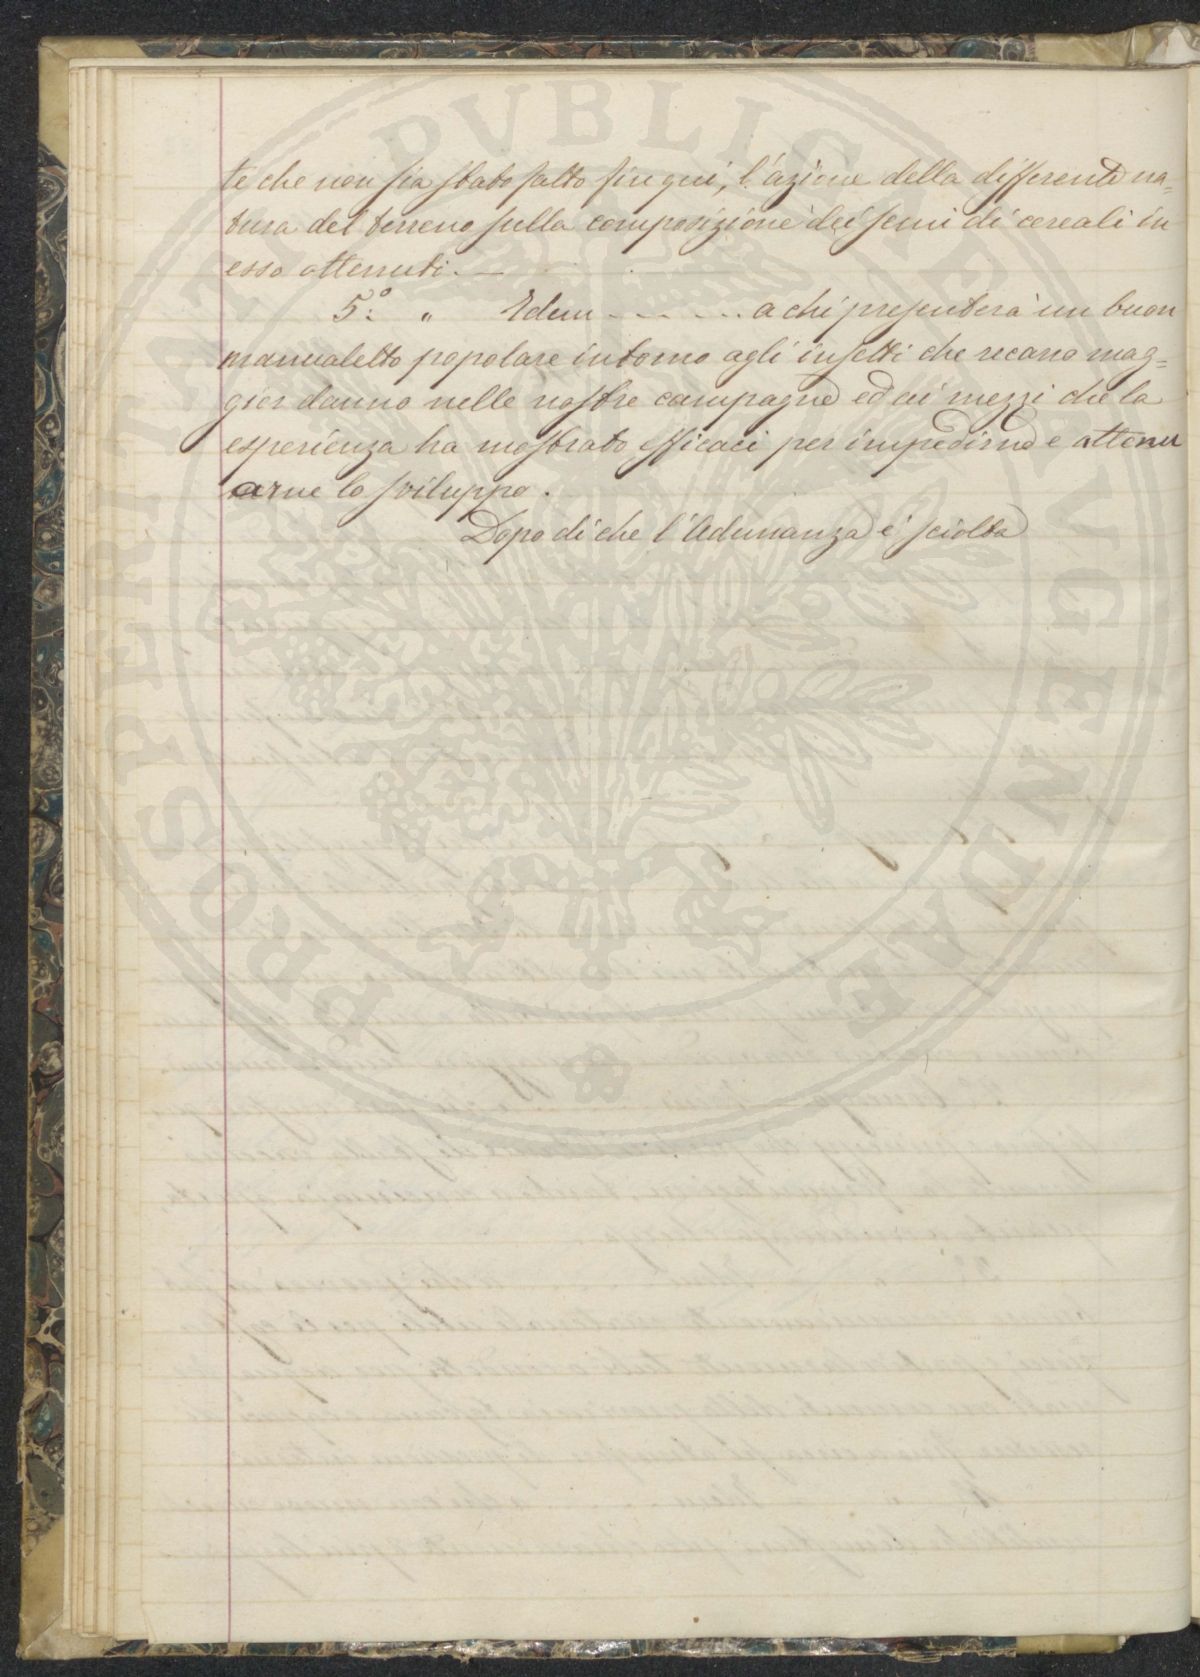 te che non sia stato fatto fin qui, l'azione della differente na=
tura del terreno sulla composizione dei semi di cereali in
esso ottenuti. —
5.° " Idem - - - - . . . a chi presenterà un buon
manualetto popolare intorno agli insetti che recano mag=
gior danno nelle nostre campagne ed ai mezzi che la
esperienza ha mostrato efficaci per impedirne e attenu
arne lo sviluppo.
Dopo di che l'Adunanza è sciolta
PROSPERITATI PVBLICAE AVGENDAE